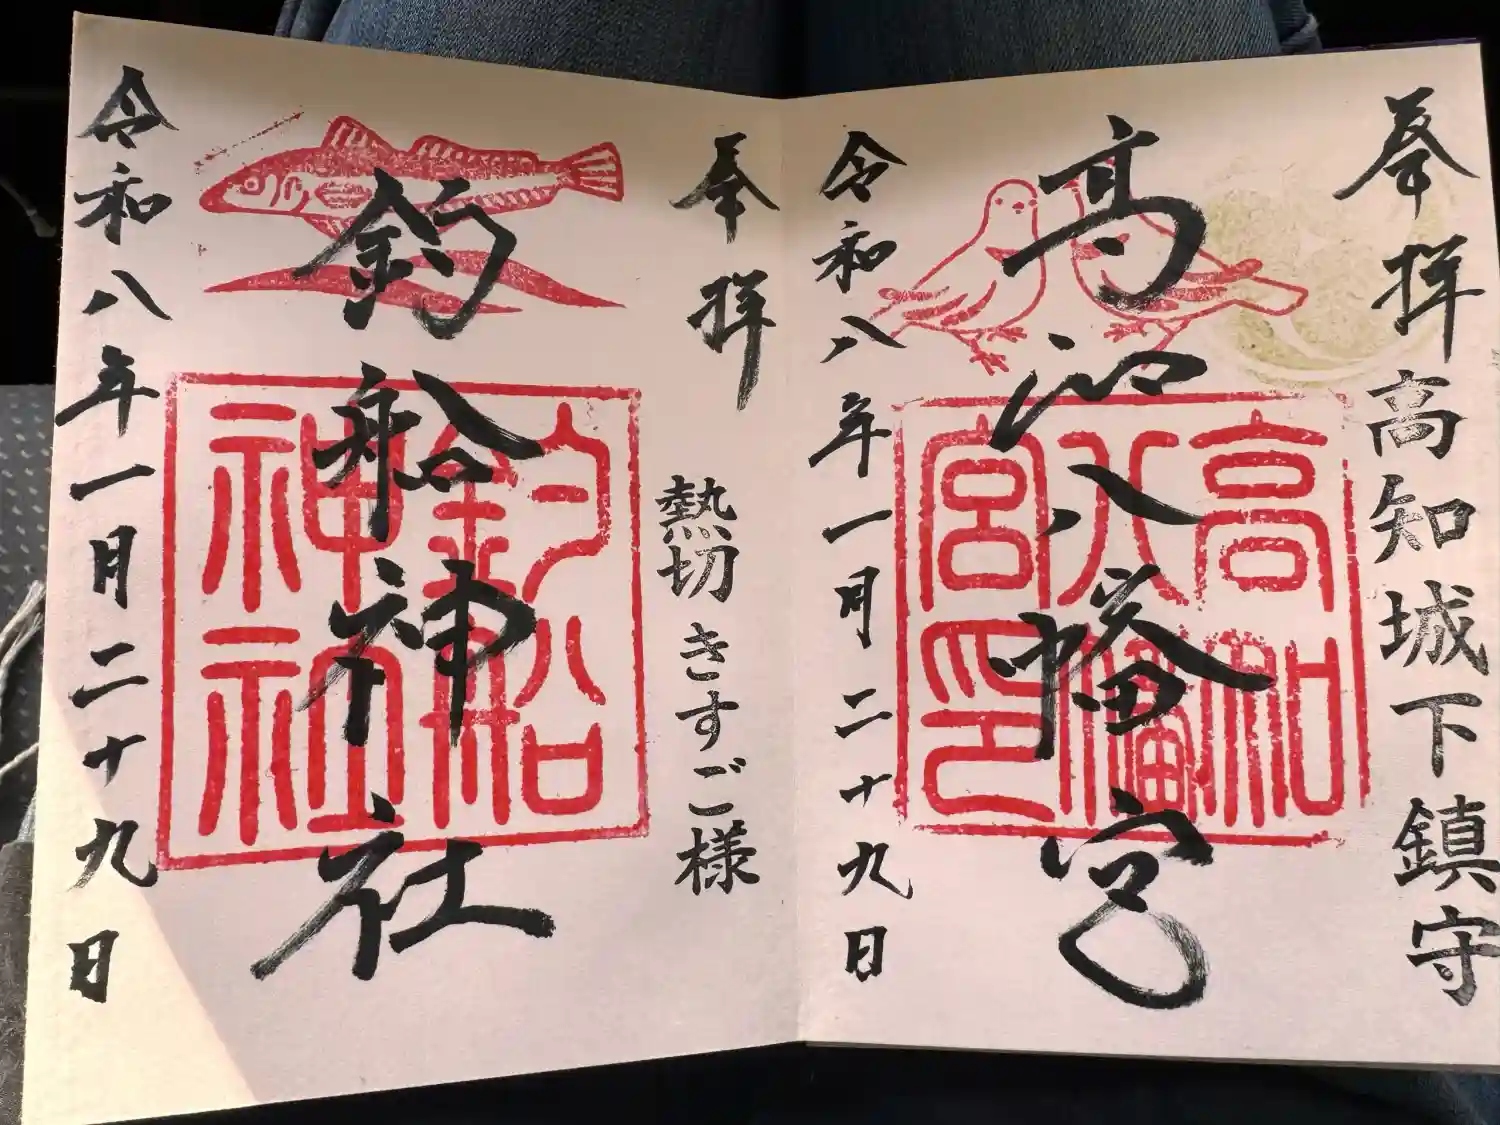 奉拝
高知城下鎮守
高知八幡宮
高知
八幡
宮印
令和八年一月二十九日
奉拝
熱切きすご様
釣船神社
釣船
神社
令和八年一月二十九日